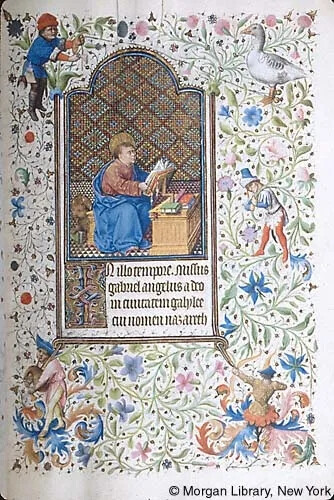 IN illo tempore. Missus
gabriel angelus a deo
in civitatem galylee
cui nomen nazareth
© Morgan Library, New York